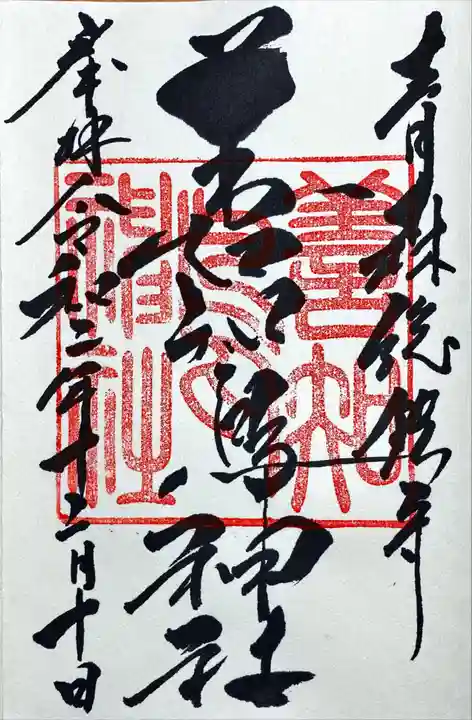 青森総鎮守
善知鳥神社
奉拝 令和三年十二月十日
善知鳥神社